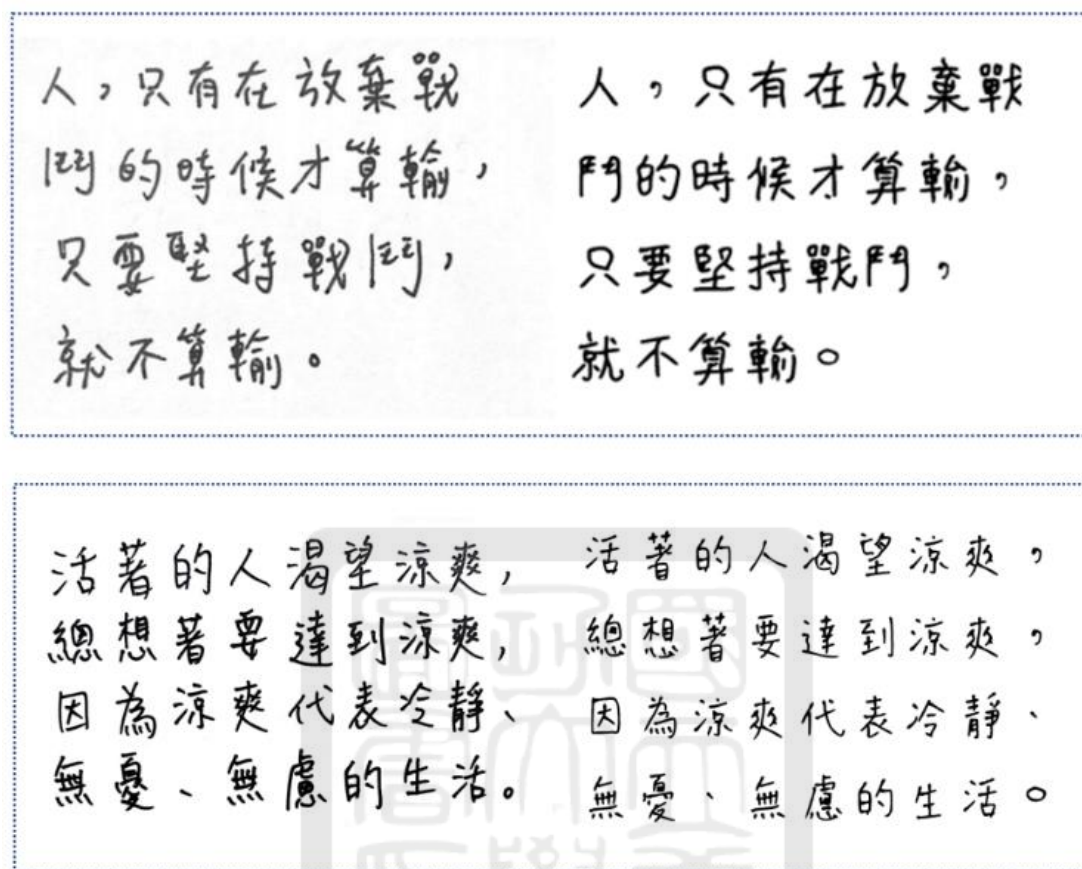 人，只有在放棄戰
鬥的時候才算輸，
只要堅持戰鬥，
就不算輸。
人，只有在放棄戰
鬥的時候才算輸，
只要堅持戰鬥，
就不算輸。
活著的人渴望涼爽，
總想著要達到涼爽，
因為涼爽代表冷靜、
無憂、無慮的生活。
活著的人渴望涼爽，
總想著要達到涼爽，
因為涼爽代表冷靜、
無憂、無慮的生活。